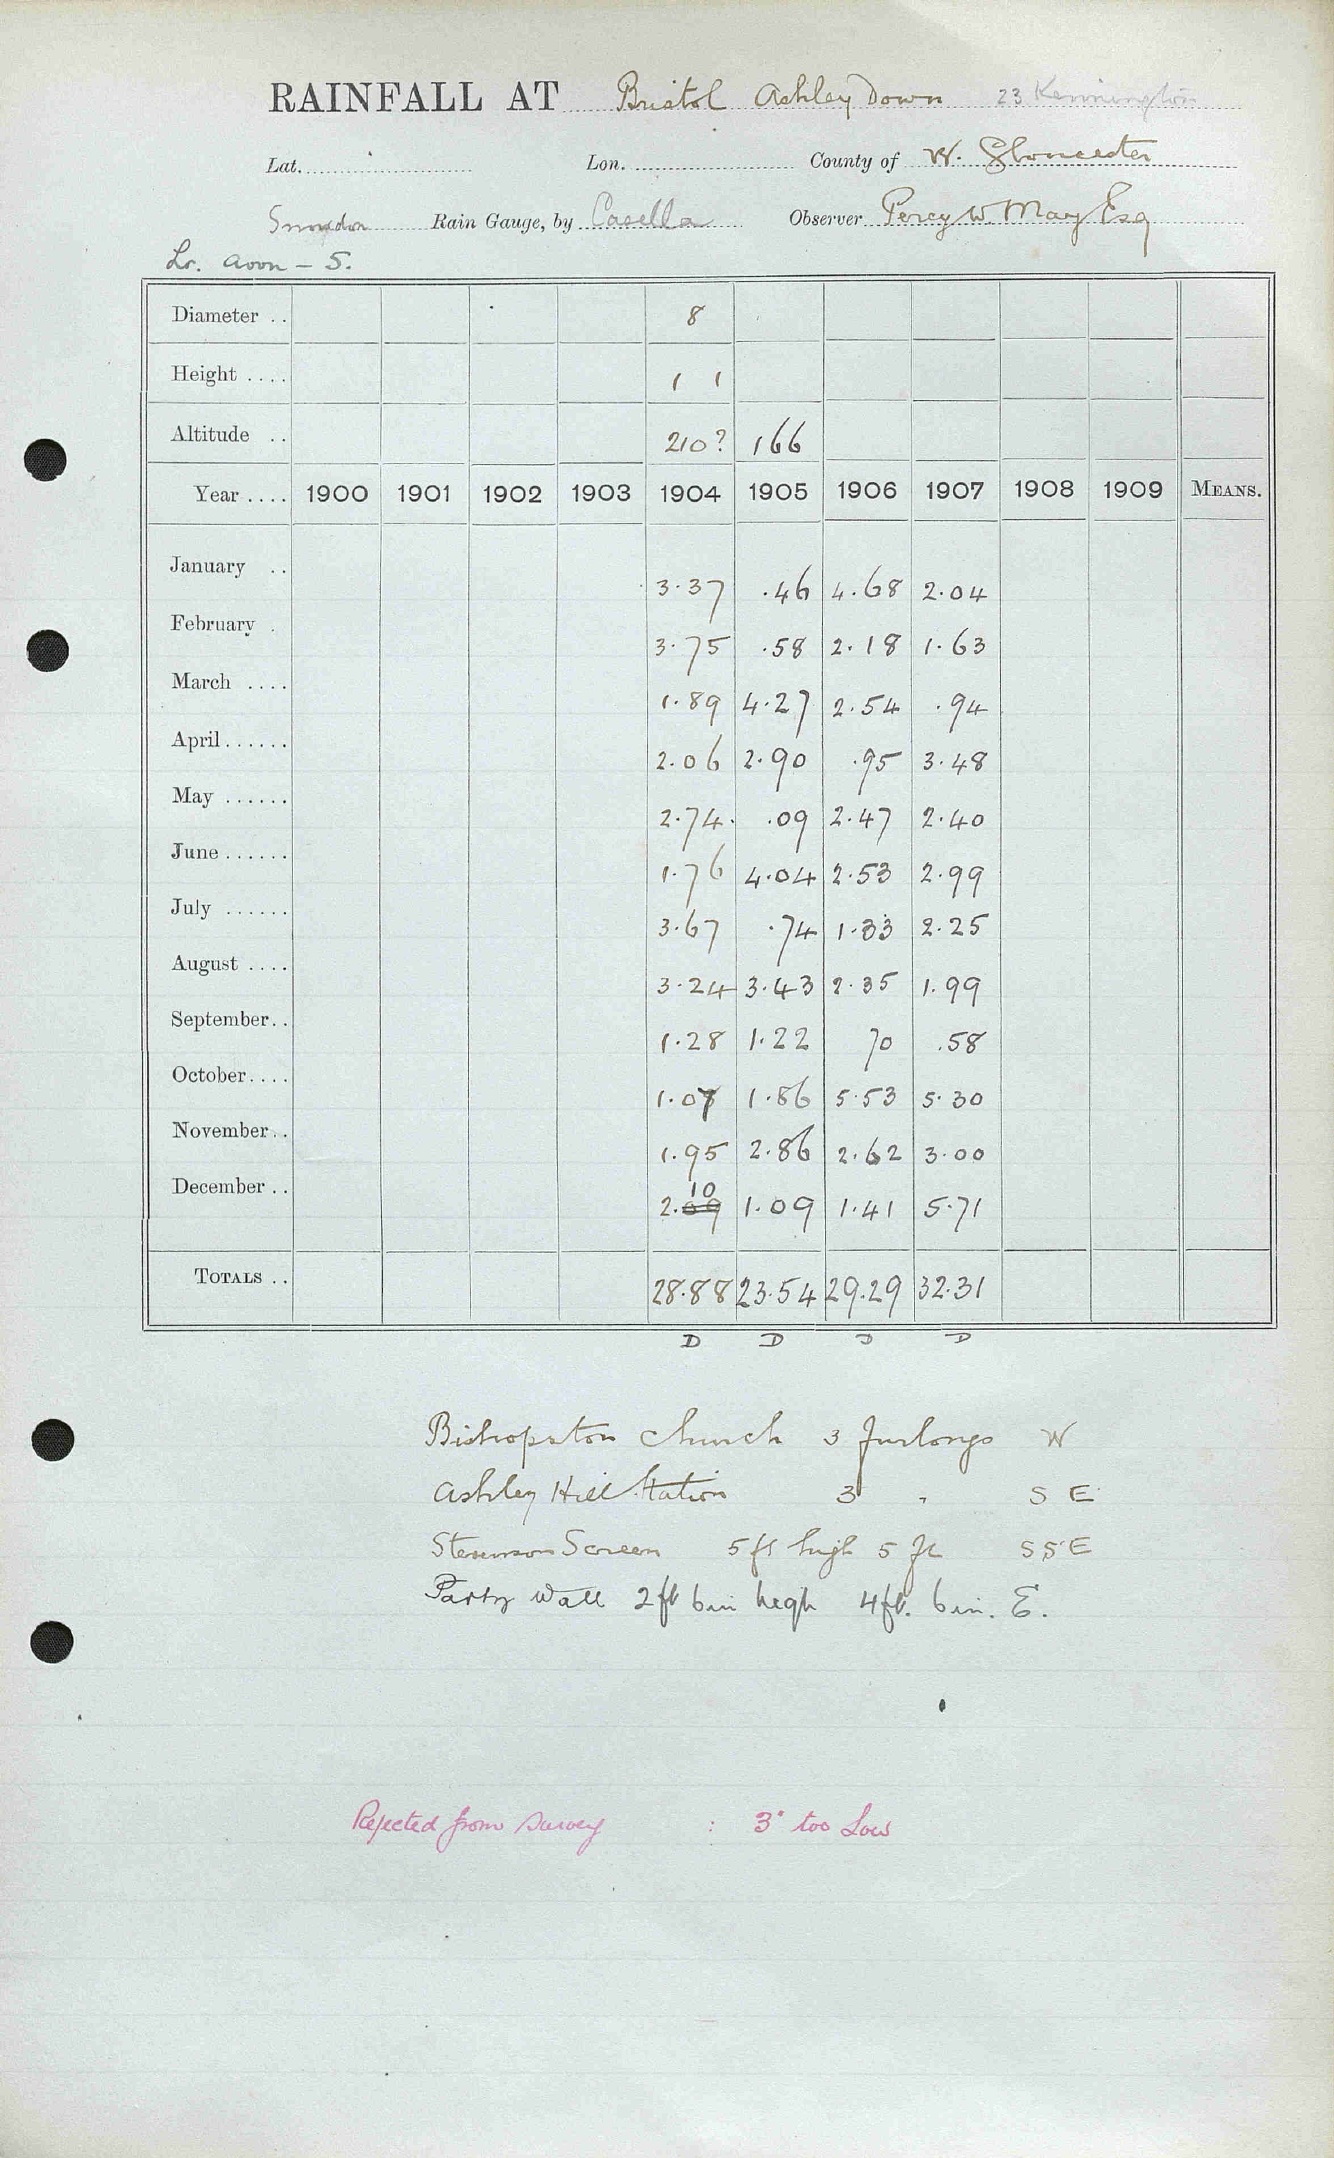 RAINFALL AT Bristol Ashley Down 23 Kennington
Lat. Lon. County of W. Gloucester
Snowdon Rain Gauge, by Casella Observer Percy W. May Esq
Lr. Avon - S.
Diameter .. 8
Height .... 1 1
Altitude .. 210? 166
Year .... 1900 1901 1902 1903 1904 1905 1906 1907 1908 1909 MEANS.
January .. 3.37 .46 4.68 2.04
February . 3.75 .58 2.18 1.63
March .... 1.89 4.27 2.54 .94
April ...... 2.06 2.90 .95 3.48
May ...... 2.74 .09 2.47 2.40
June ...... 1.76 4.04 2.53 2.99
July ...... 3.67 .74 1.33 2.25
August .... 3.24 3.43 2.35 1.99
September.. 1.28 1.22 70 .58
October.... 1.07 1.86 5.53 5.30
November.. 1.95 2.86 2.62 3.00
10
December .. 2.09 1.09 1.41 5.71
TOTALS .. 28.88 23.54 29.29 32.31
D D D D
Bishopston Church 3 furlongs W
Ashley Hill Station 3 " S E
Stevenson Screen 5 ft high 5 ft SSE
Party Wall 2 ft 6 in high 4 ft. 6 in. E.
Rejected from Survey : 3" too Low